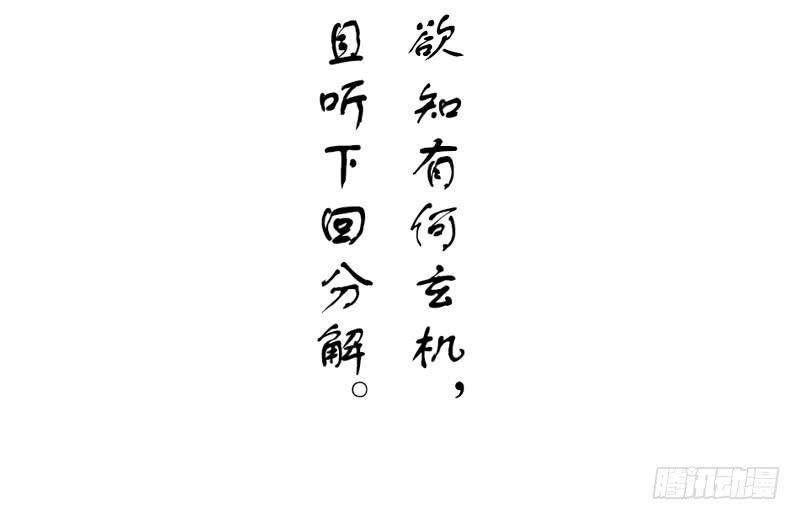 欲知有何玄机，
且听下回分解。
腾讯动漫